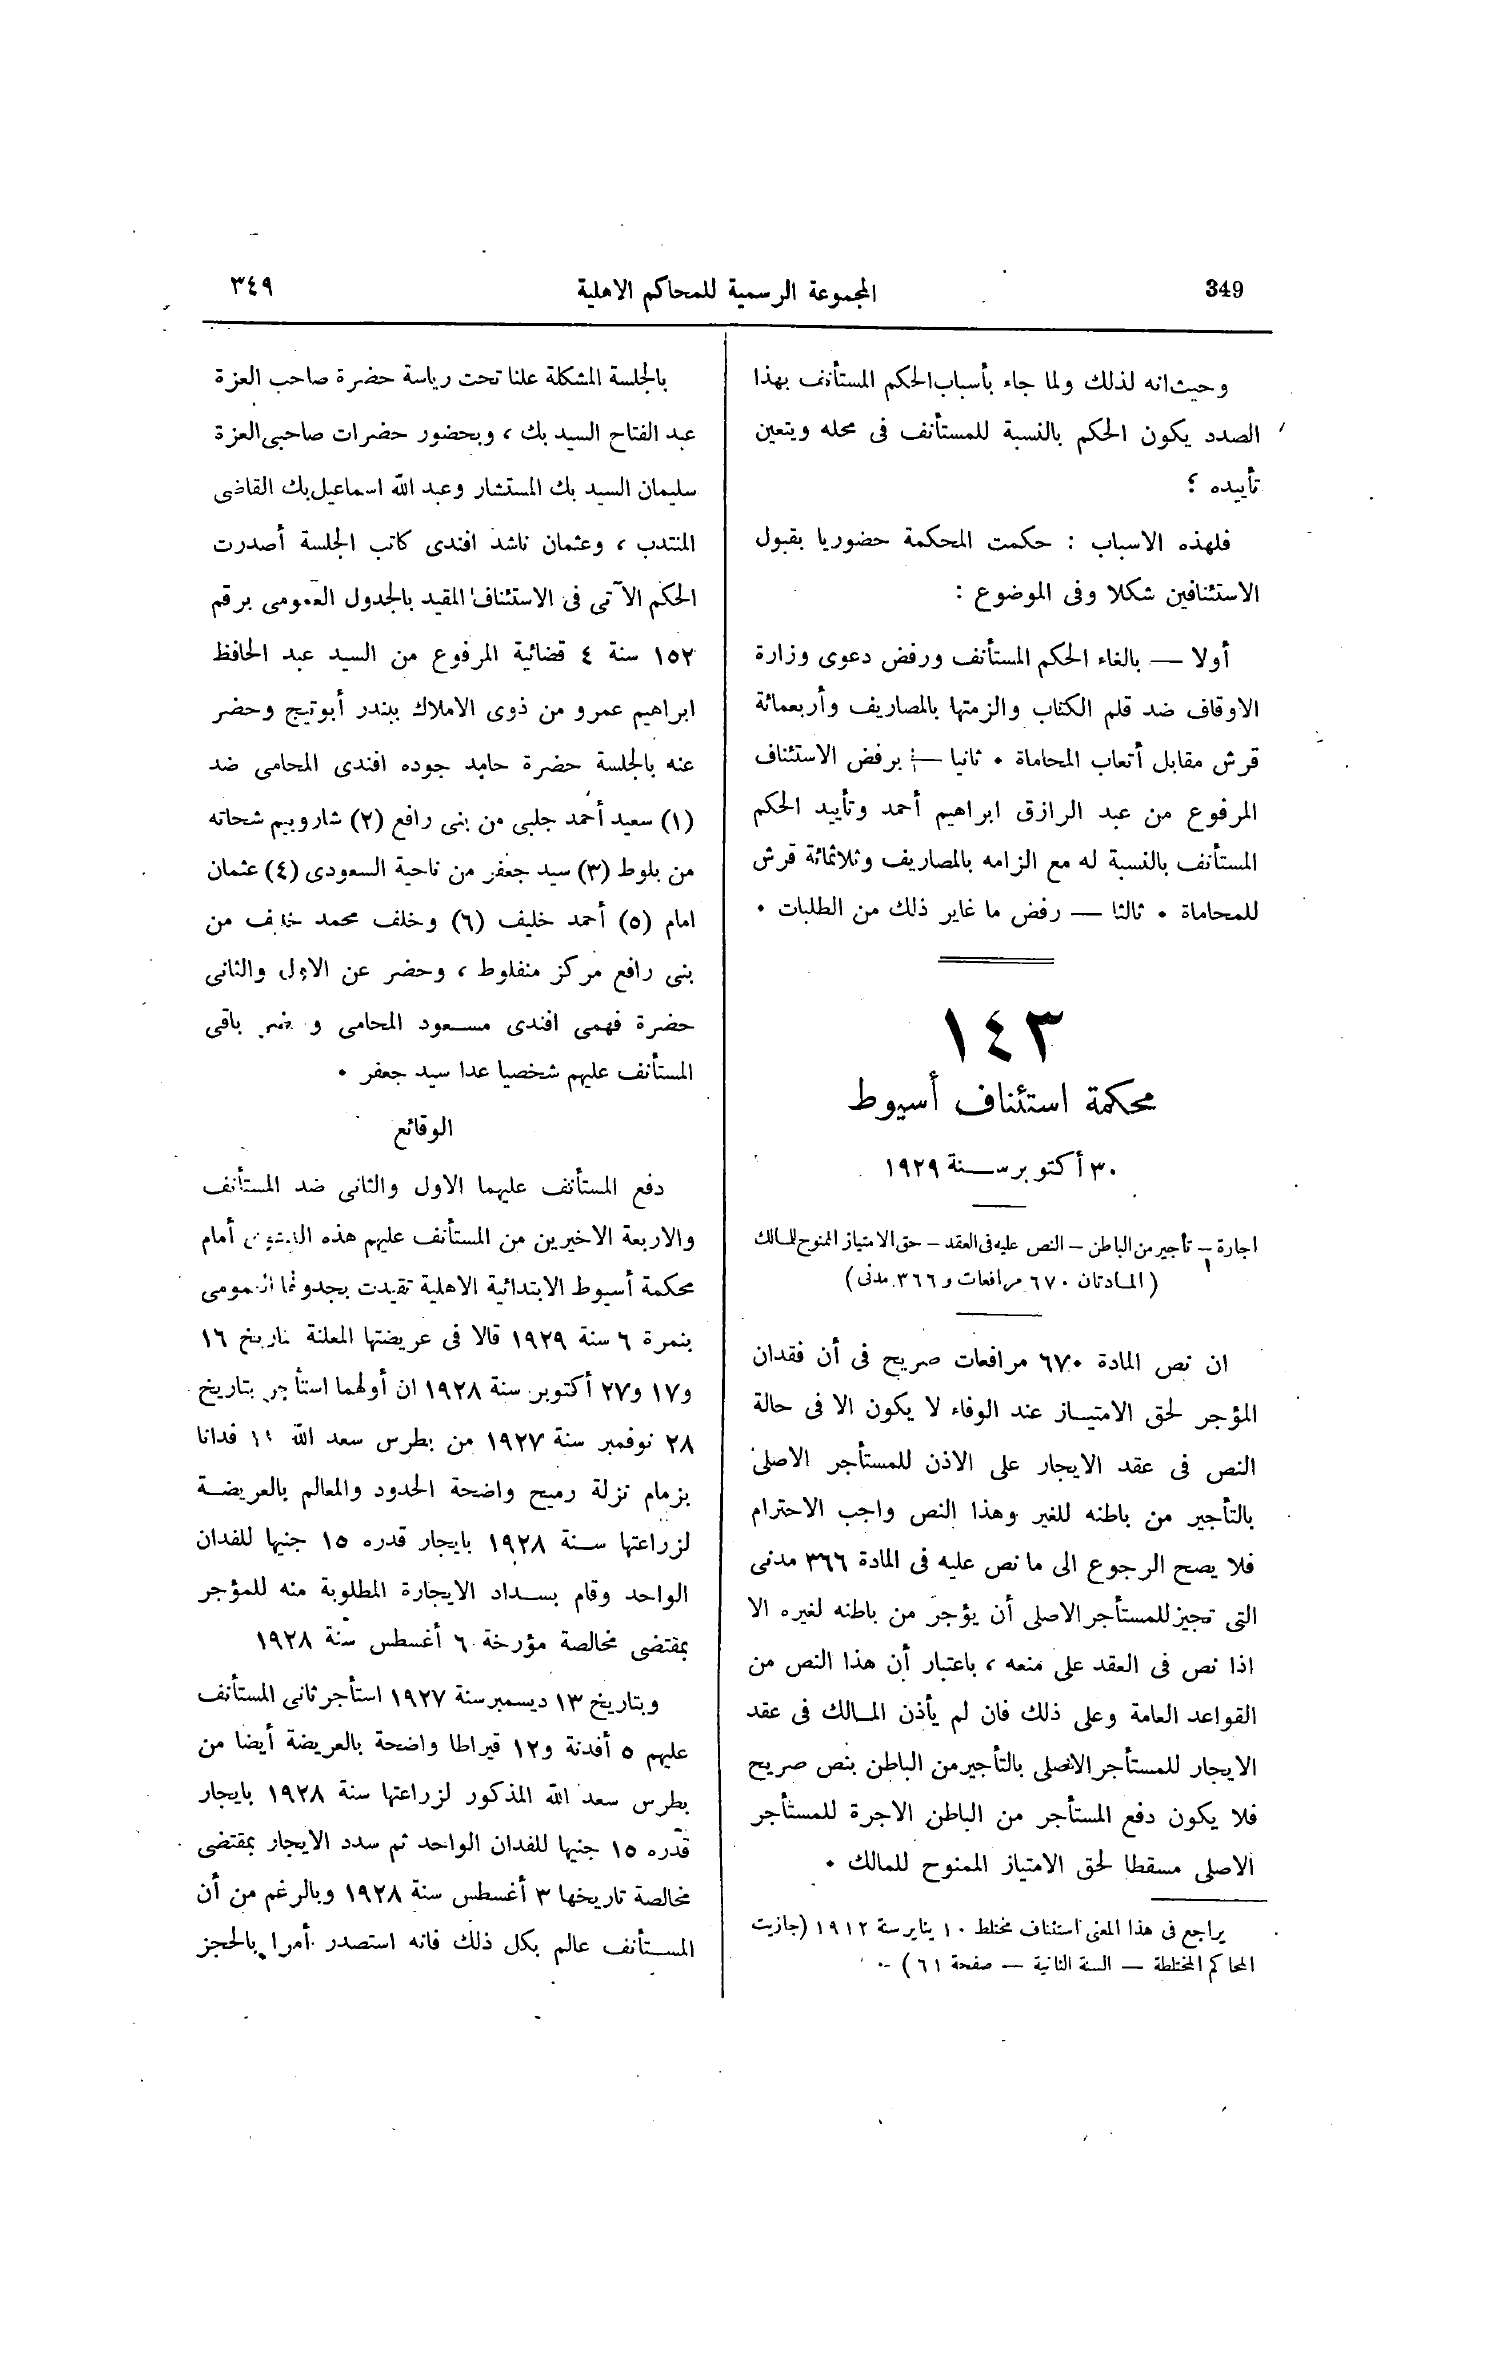 349
المجموعة الرسمية للمحاكم الاهلية
٣٤٩
وحيث انه لذلك ولما جاء بأسباب الحكم المستأنف بهذا
الصدد يكون الحكم بالنسبة للمستأنف فى محله ويتعين
تأييده ؟
فلهذه الاسباب : حكمت المحكمة حضوريا بقبول
الاستئنافين شكلا وفى الموضوع :
أولا — بالغاء الحكم المستأنف ورفض دعوى وزارة
الاوقاف ضد قلم الكتاب والزمتها بالمصاريف وأربعمائة
قرش مقابل أتعاب المحاماة . ثانيا — برفض الاستئناف
المرفوع من عبد الرازق ابراهيم أحمد وتأييد الحكم
المستأنف بالنسبة له مع الزامه بالمصاريف وثلاثمائة قرش
للمحاماة . ثالثا — رفض ما غاير ذلك من الطلبات .
١٤٣
محكمة استئناف أسيوط
٣٠ أكتوبر سنة ١٩٢٩
اجارة – تأجير من الباطن – النص عليه فى العقد – حق الامتياز الممنوح للمالك
( المادتان ٦٧٠ مرافعات و ٣٦٦ مدنى )
ان نص المادة ٦٧٠ مرافعات صريح فى أن فقدان
المؤجر لحق الامتياز عند الوفاء لا يكون الا فى حالة
النص فى عقد الايجار على الاذن للمستأجر الاصلى
بالتأجير من باطنه للغير وهذا النص واجب الاحترام
فلا يصح الرجوع الى ما نص عليه فى المادة ٣٦٦ مدنى
التى تجيز للمستأجر الاصلى أن يؤجر من باطنه لغيره الا
اذا نص فى العقد على منعه ، باعتبار أن هذا النص من
القواعد العامة وعلى ذلك فان لم يأذن المالك فى عقد
الايجار للمستأجر الاصلى بالتأجير من الباطن بنص صريح
فلا يكون دفع المستأجر من الباطن الاجرة للمستأجر
الاصلى مسقطا لحق الامتياز الممنوح للمالك .
يراجع فى هذا المعنى استئناف مختلط ١٠ يناير سنة ١٩١٢ (جازيت
المحاكم المختلطة — السنة الثانية — صفحة ٦١ )
بالجلسة المشكلة علنا تحت رياسة حضرة صاحب العزة
عبد الفتاح السيد بك ، وبحضور حضرات صاحبى العزة
سليمان السيد بك المستشار وعبد الله اسماعيل بك القاضى
المنتدب ، وعثمان ناشد افندى كاتب الجلسة أصدرت
الحكم الآتى فى الاستئناف المقيد بالجدول العمومى برقم
١٥٢ سنة ٤ قضائية المرفوع من السيد عبد الحافظ
ابراهيم عمرو من ذوى الاملاك ببندر أبوتيج وحضر
عنه بالجلسة حضرة حامد جوده افندى المحامى ضد
(١) سعيد أحمد جلبى من بنى رافع (٢) شاروبيم شحاته
من بلوط (٣) سيد جعفر من ناحية السعودى (٤) عثمان
امام (٥) أحمد خليف (٦) وخلف محمد خلف من
بنى رافع مركز منفلوط ، وحضر عن الاول والثانى
حضرة فهمى افندى مسعود المحامى وحضر باقى
المستأنف عليهم شخصيا عدا سيد جعفر .
الوقائع
دفع المستأنف عليهما الاول والثانى ضد المستأنف
والاربعة الاخيرين من المستأنف عليهم هذه الدعوى أمام
محكمة أسيوط الابتدائية الاهلية تقيدت بجدولها العمومى
بنمرة ٦ سنة ١٩٢٩ قالا فى عريضتها المعلنة بتاريخ ١٦
و١٧ و٢٧ أكتوبر سنة ١٩٢٨ ان أولهما استأجر بتاريخ
٢٨ نوفمبر سنة ١٩٢٧ من بطرس سعد الله فدانا
بزمام نزلة رميح واضحة الحدود والمعالم بالعريضة
لزراعتها سنة ١٩٢٨ بايجار قدره ١٥ جنيها للفدان
الواحد وقام بسداد الايجارة المطلوبة منه للمؤجر
بمقتضى مخالصة مؤرخة ٦ أغسطس سنة ١٩٢٨
وبتاريخ ١٣ ديسمبر سنة ١٩٢٧ استأجر ثانى المستأنف
عليهم ٥ أفدنة و١٢ قيراطا واضحة بالعريضة أيضا من
بطرس سعد الله المذكور لزراعتها سنة ١٩٢٨ بايجار
قدره ١٥ جنيها للفدان الواحد ثم سدد الايجار بمقتضى
مخالصة تاريخها ٣ أغسطس سنة ١٩٢٨ وبالرغم من أن
المستأنف عالم بكل ذلك فانه استصدر أمرا بالحجز